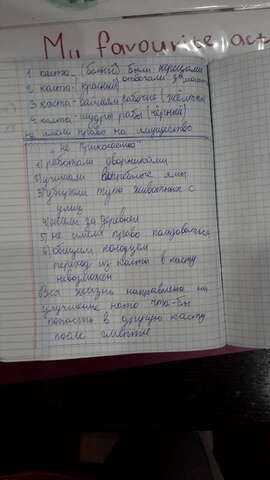 My favourite act
1 каста - (белый) были жрецами
2 каста - (красный) отвечали за
3 каста - вайшьи рабочие (жёлтый)
4 каста - шудры рабы (чёрный)
не имели право на имущество
"не прикасаемые"
1) работали дворниками
2) чистили выгребные ямы
3) убирали трупы животных с
улиц
4) жили за деревней
5) не имели право пользоваться
6) общим колодцем
переход из касты в касту
невозможен
Вся жизнь направлена на
улучшение кармы что-бы
попасть в другую касту
после смерти